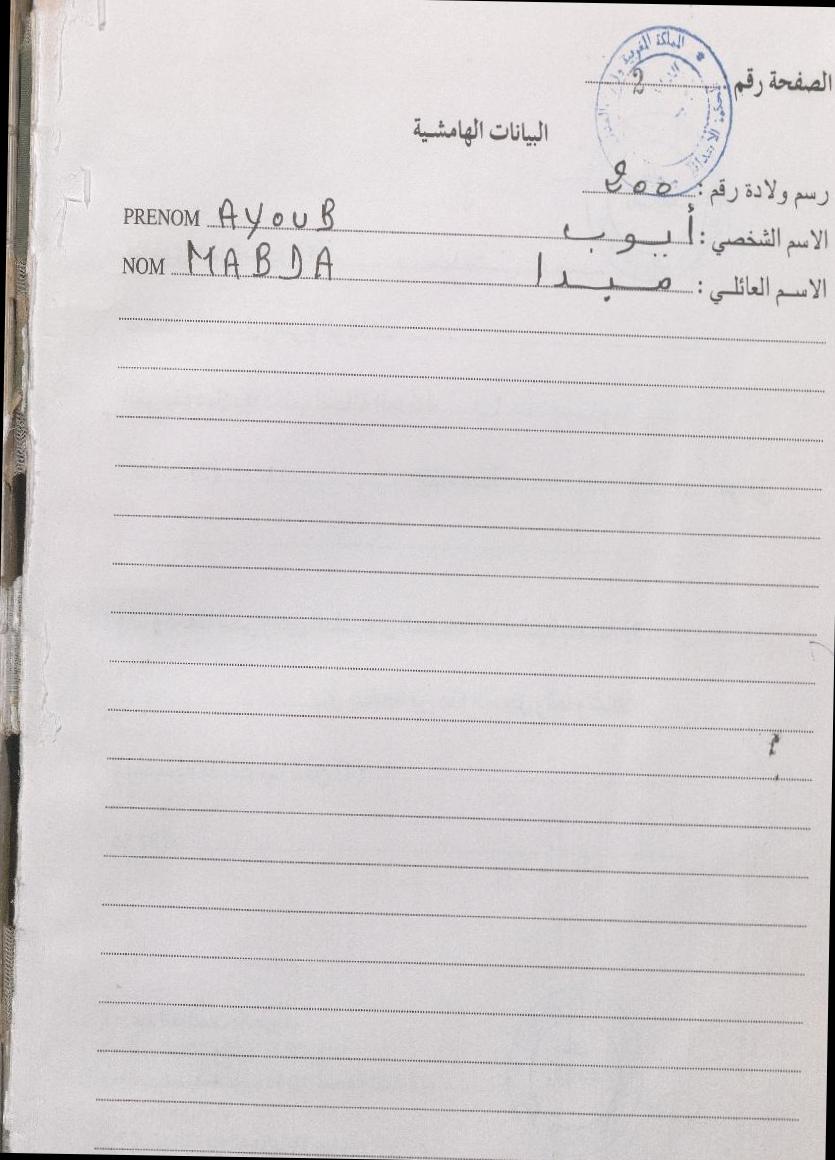 الصفحة رقم : 2
المملكة المغربية
البيانات الهامشية
رسم ولادة رقم : 200
الاسم الشخصي : أيوب PRENOM AYOUB
الاسم العائلي : مبدا NOM MABDA